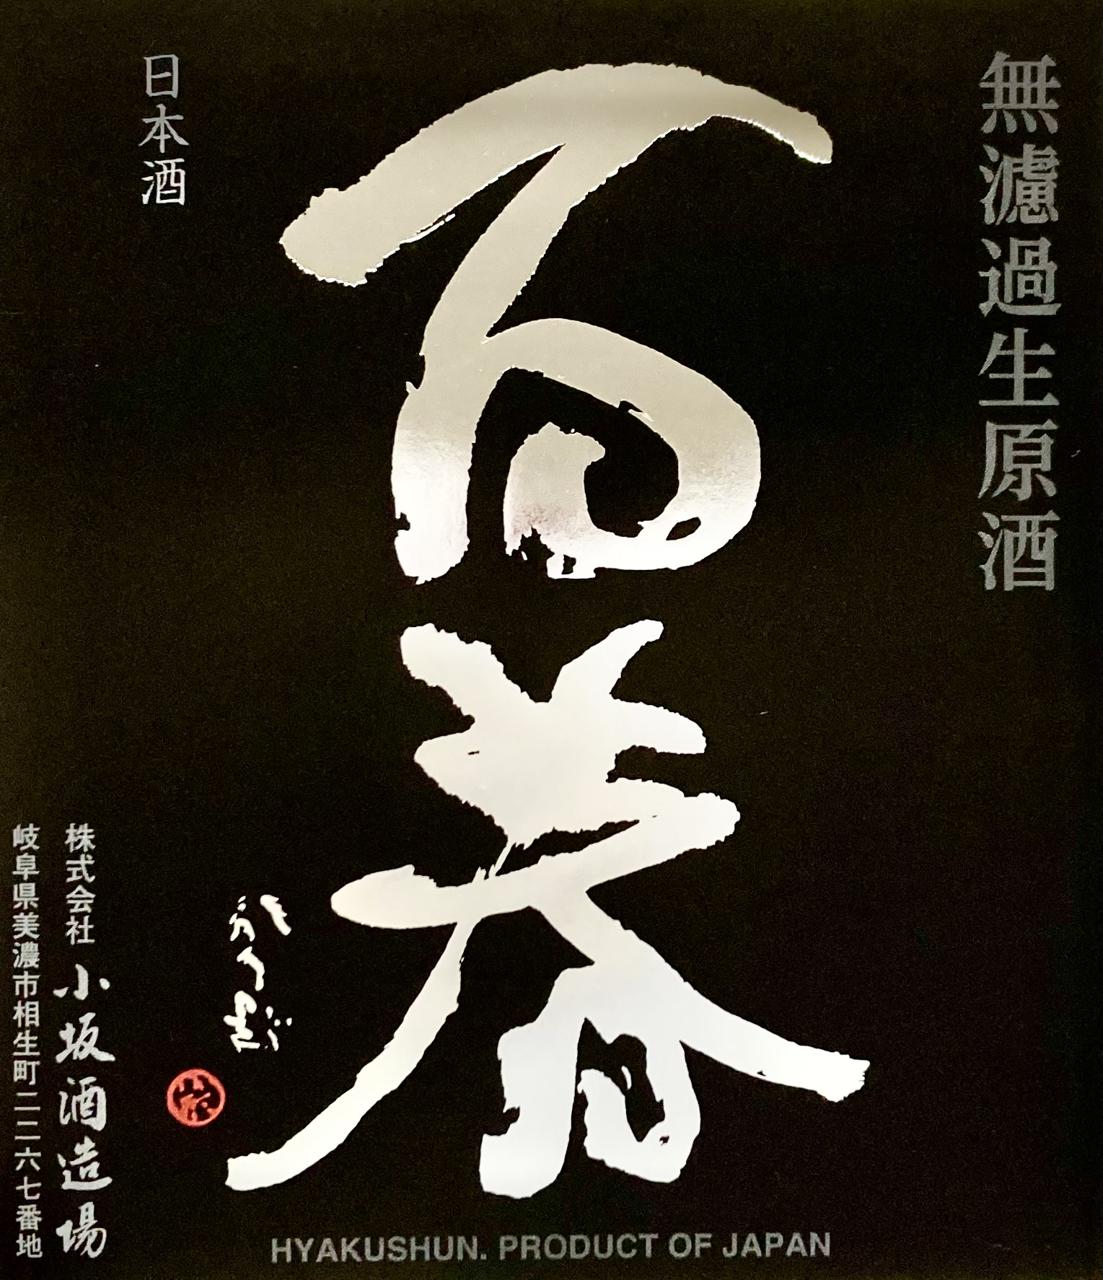 無濾過生原酒
百春
日本酒
株式会社 小坂酒造場
岐阜県美濃市相生町二二六七番地
HYAKUSHUN. PRODUCT OF JAPAN